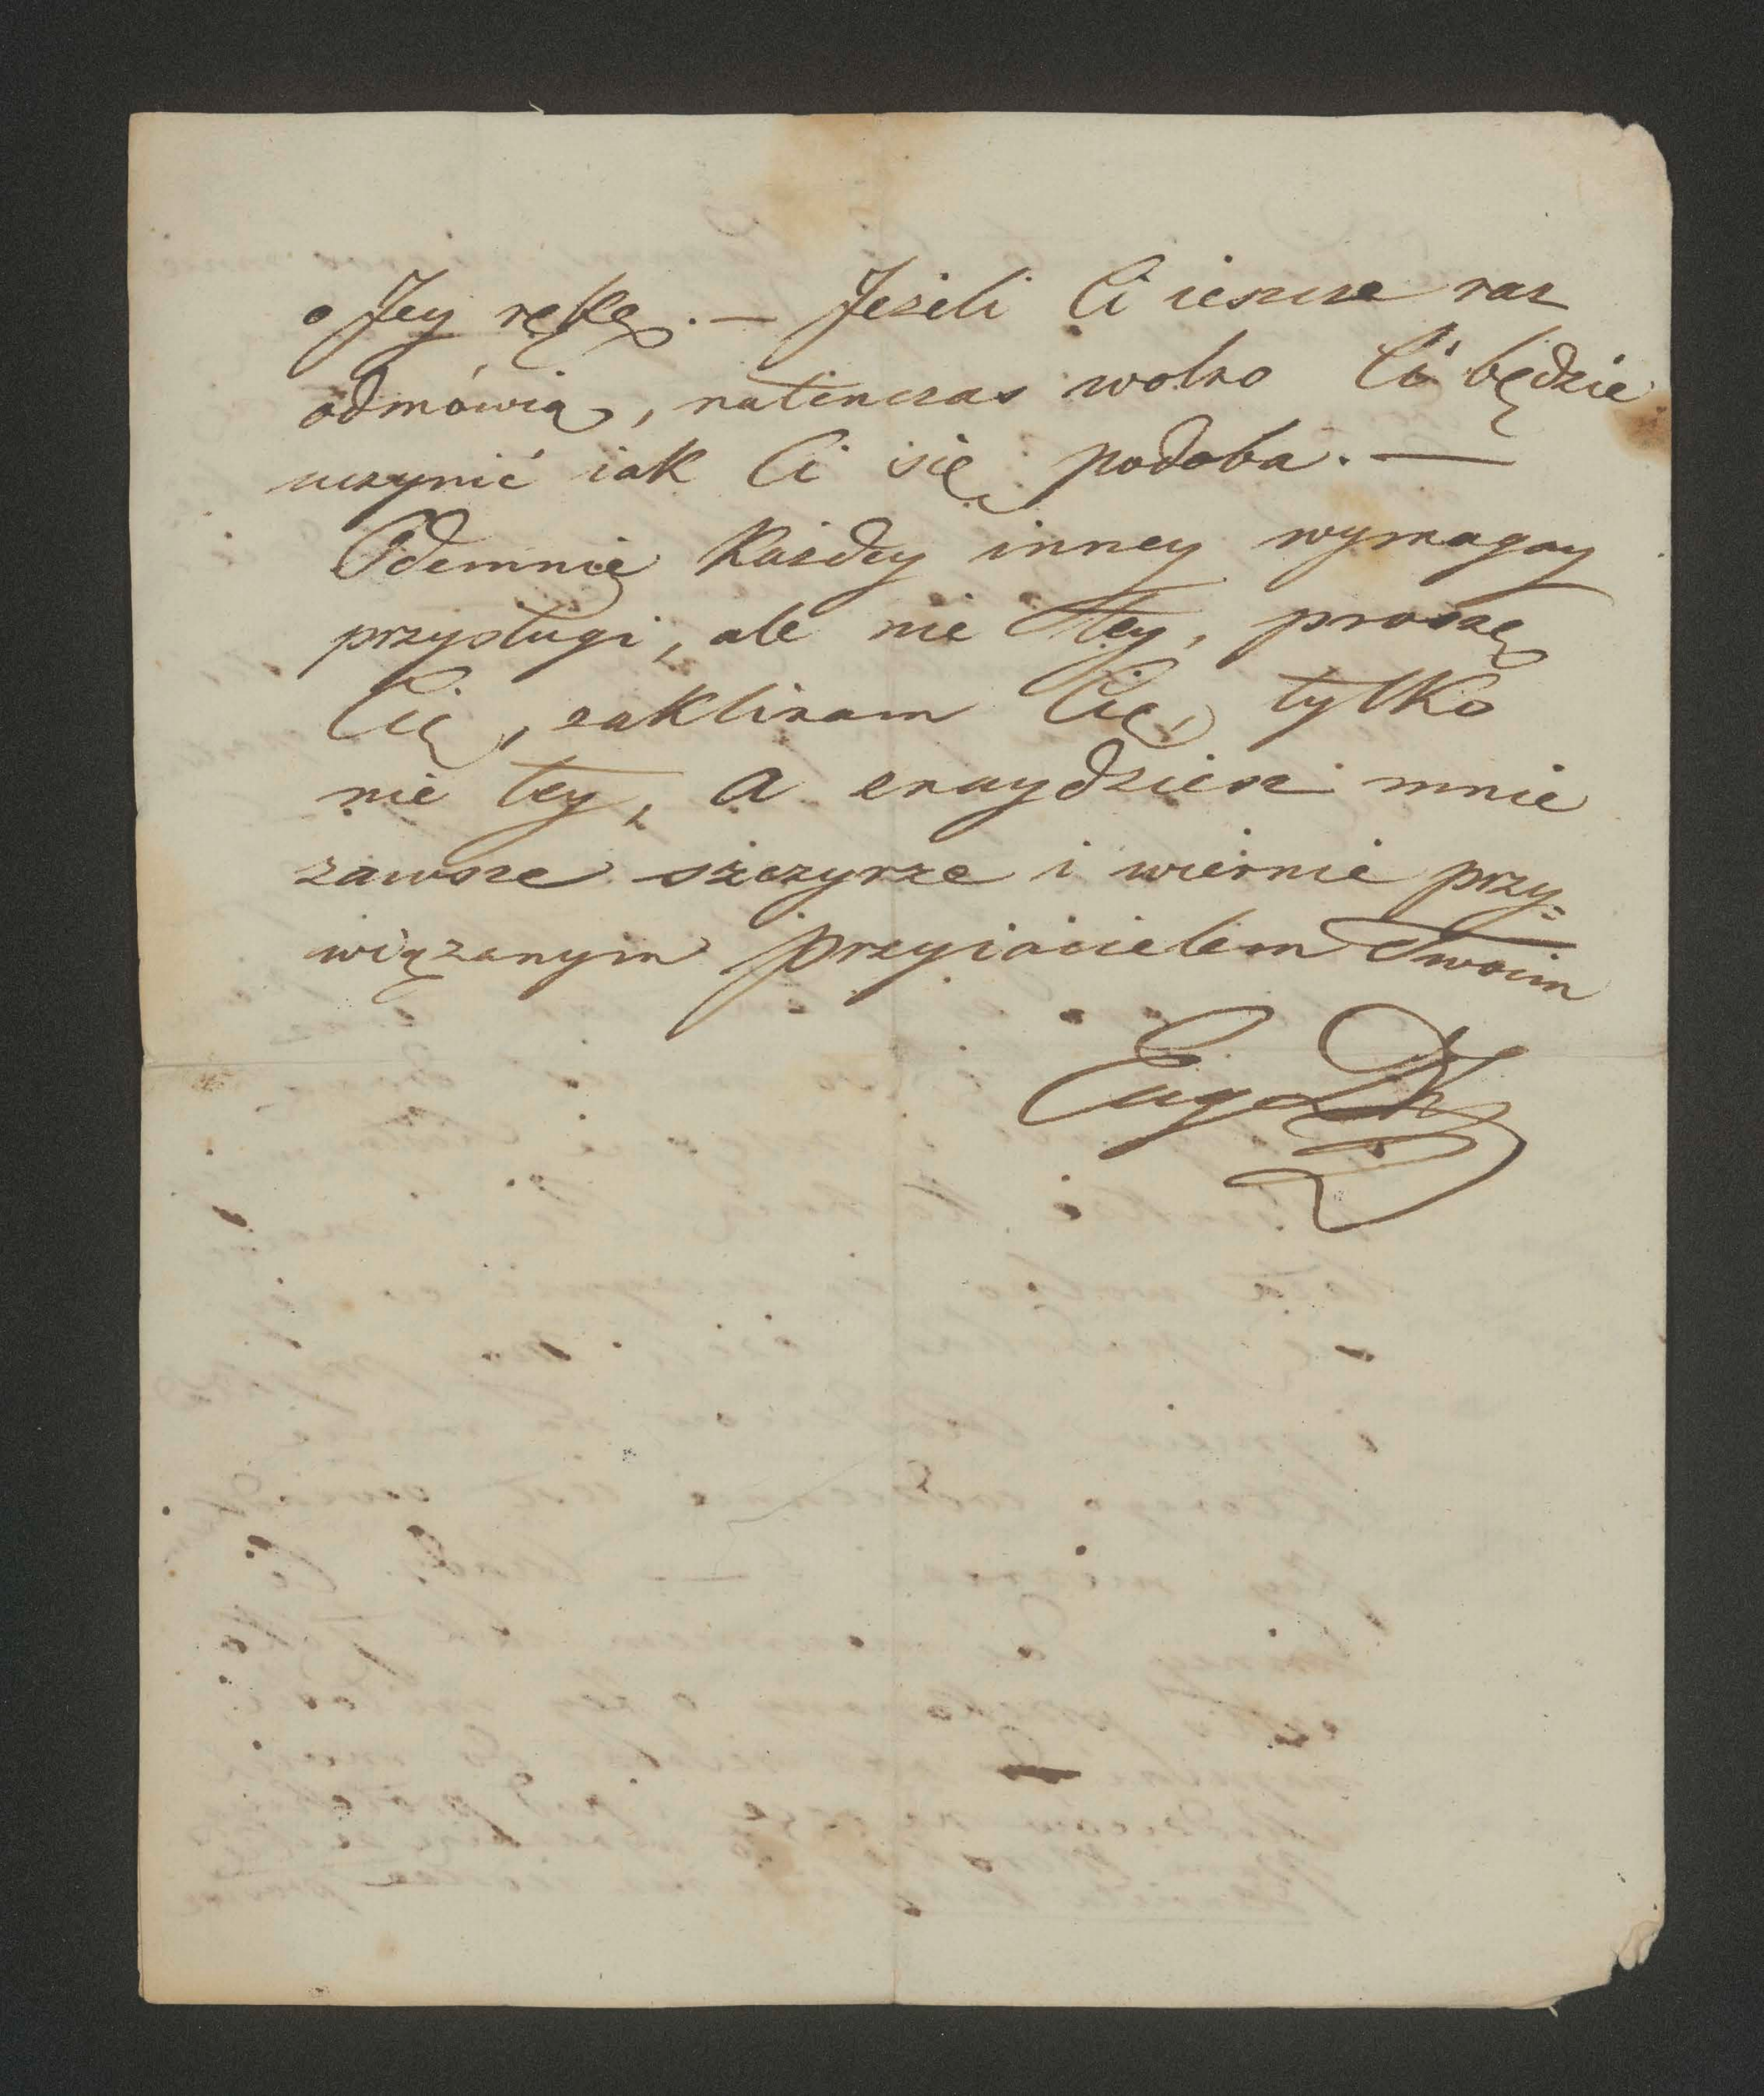 o Jey rękę. — Jeżeli Ci ieszcze raz
odmówią, natenczas wolno Ci będzie
uczynić iak Ci się podoba. —
Odemnię każdey inney wymagay
przysługi, ale nie tey, proszę
Cię, zaklinam Cię, tylko
nie tey, a znaydziesz mnie
zawsze szczyrze i wiernie przy=
wiązanym przyiacielem Twoim
Eug